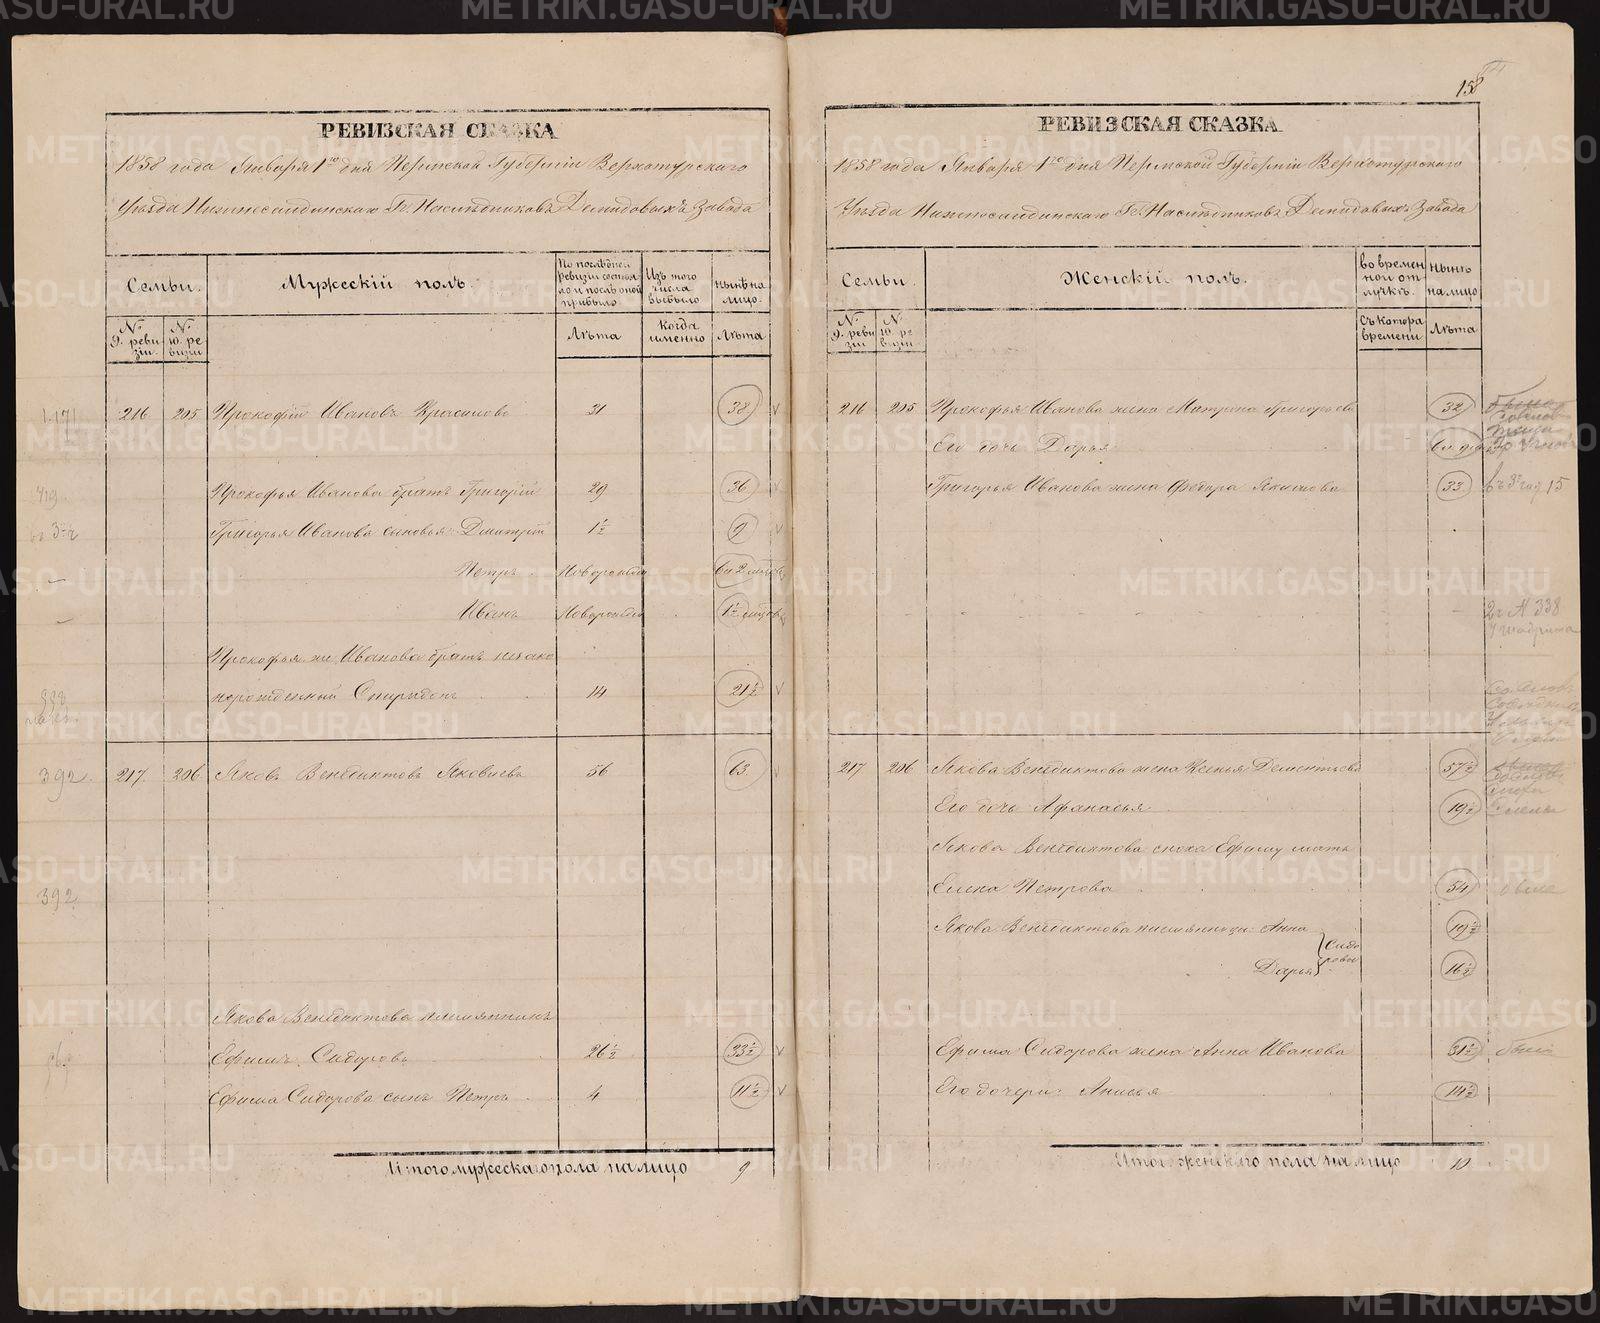 РЕВИЗСКАЯ СКАЗКА
1858 года Января 1го дня Пермской Губерніи Верхотурскаго
Уѣзда Нижнесалдинскаго Гг. Наслѣдниковъ Демидовыхъ Завода
Семьи.
Мужескій полъ.
По послѣдней ревизіи состояло и послѣ оной прибыло.
Изъ того числа выбыло
Нынѣ на лицо.
№ 9. ревизіи
№ 10. ревизіи
Лѣта
Когда именно
Лѣта
216 205 Прокофій Ивановъ Красиловъ 31 38
Прокофья Иванова братъ Григорій 29 36
Григорья Иванова сыновья: Дмитрій 1½ 9
Петръ Новорожден
Иванъ Новорожден
Прокофья же Иванова братъ незако
норожденный Спиридонъ 14 21½
392. 217. 206 Яковъ Венедиктовъ Яковлевъ 56 63.
392
Якова Венедиктова племянникъ
Ефимъ Сидоровъ 26½ 33½
Ефима Сидорова сынъ Петръ 4 11½
Итого мужескаго пола на лицо 9
158
РЕВИЗСКАЯ СКАЗКА
1858 года Января 1го дня Пермской Губерніи Верхотурскаго
Уѣзда Нижносалдинскаго Гг. Наслѣдниковъ Демидовыхъ Завода
Семьи.
Женскій полъ.
Во временной отлучкѣ.
Нынѣ на лицо
№ 9. ревизіи
№ 10. ревизіи
Съ котора времени
Лѣта
216 205 Прокофья Иванова жена Матрона Григорьева 32
Его дочь Дарья
Григорья Иванова жена Федора Якимова 33
№ 338
217 206 Якова Венедиктова жена Ксенья Дементьева 57½
Его дочь Афанасья 19½
Якова Венедиктова сноха Ефиму мать
Елена Петрова 54
Якова Венедиктова племянницы: Анна 19½
Сидоровы
Дарья 16½
Ефима Сидорова жена Анна Иванова 31½
Его дочери: Анисья 14½
Итого женскаго пола на лицо 10
METRIKI.GASO-URAL.RU